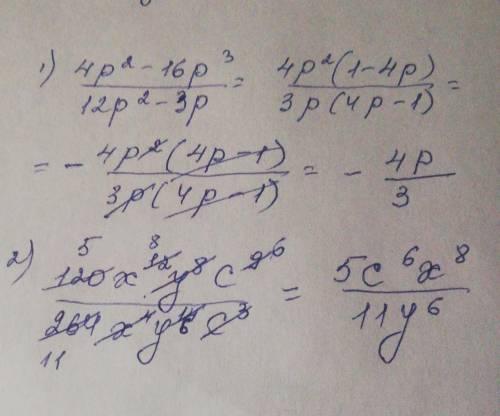 1) (4p² - 16p³)/(12p² - 3p) = (4p²(1 - 4p))/(3p(4p - 1)) =
= - (4p²(4p - 1))/(3p(4p - 1)) = - 4p/3
2) (120x¹²y⁸c⁹)/(264x⁴y¹⁴c³) = (5c⁶x⁸)/(11y⁶)